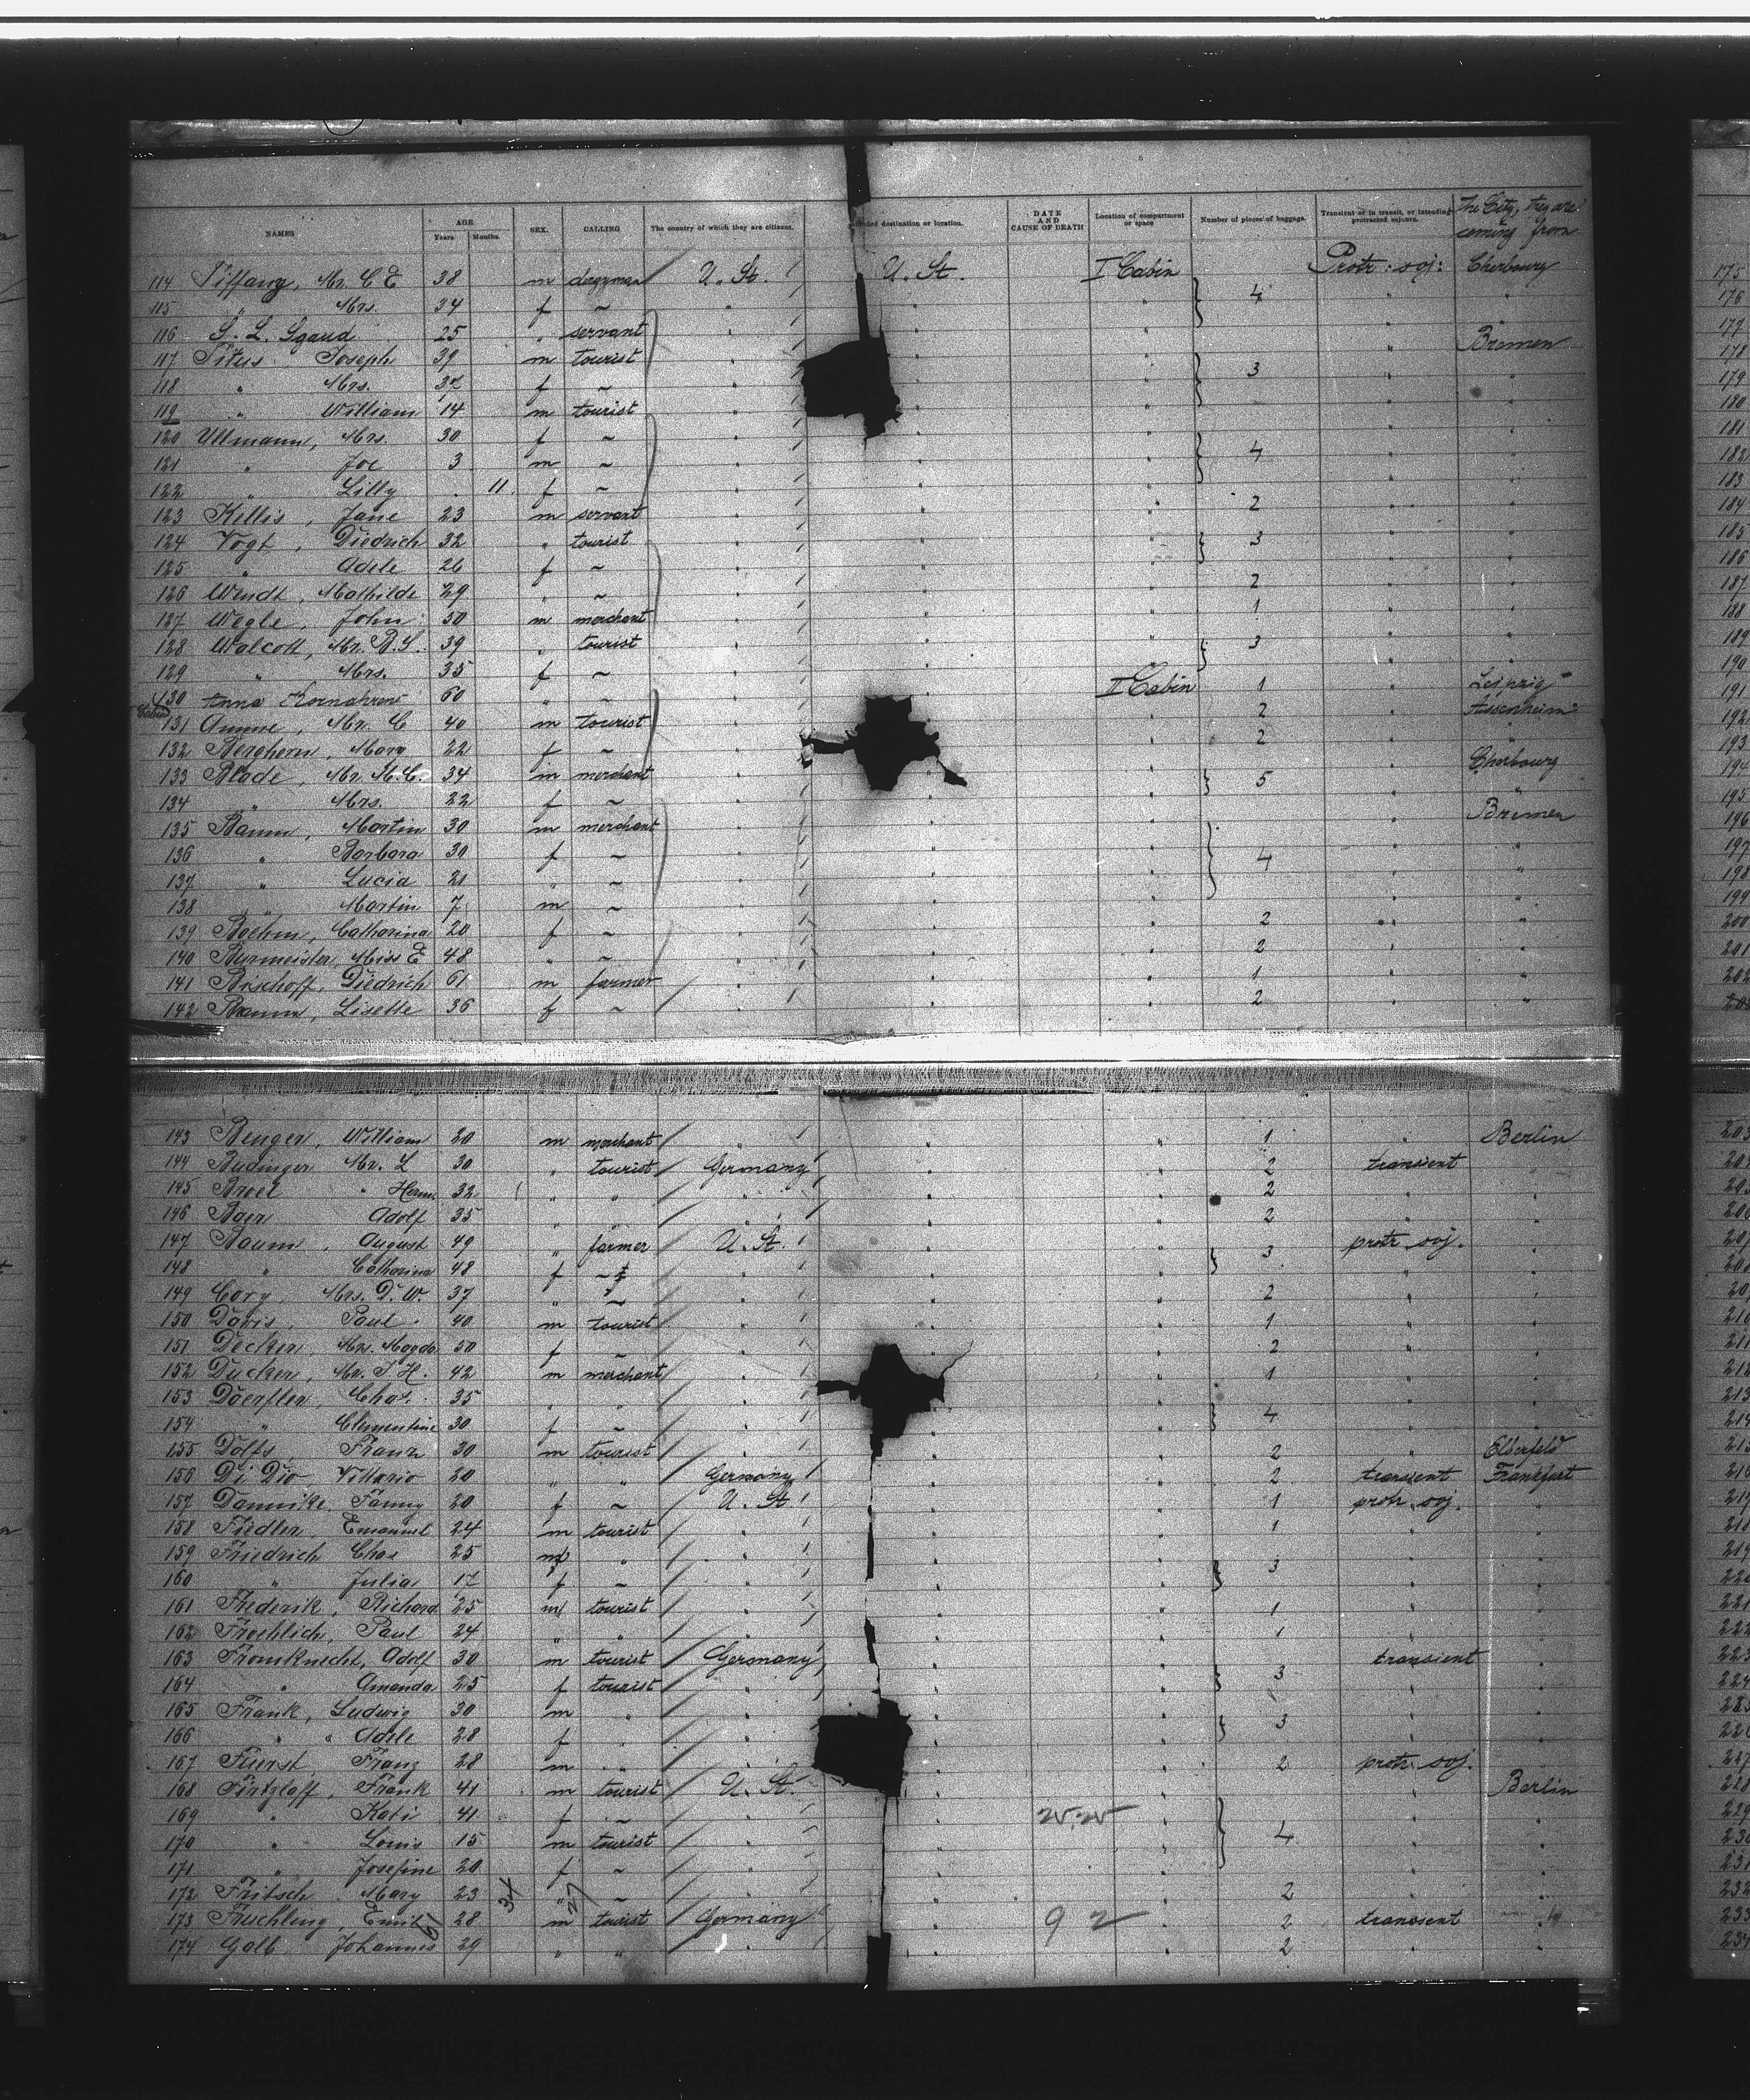 NAMES AGE Years. Months. SEX. CALLING The country of which they are citizens. destination or location. DATE AND CAUSE OF DEATH Location of compartment or space Number of pieces of baggage. Transient or in transit, or intending protracted sojourn. The City, they are coming from
114 Tiffany, Mr. C E 38 m clergyman U. St. U. St. I Cabin Protr: soj: Cherbourg
115 " Mrs. 34 f ~ " " 4 "
116 S. L. 25 " servant
117 Titus Joseph 39 m tourist Bremen
118 " Mrs. 37 f ~ 3
119 " William 14 m tourist
120 Ullmann, Mrs. 30 f ~
121 " Joe 3 m ~ 4
122 " Lilly 11 f ~
123 Killis, Jane 23 m servant 2
124 Vogt, Diedrich 32 " tourist 3
125 " Adele 26 f ~
126 Wendt, Mathilde 29 " ~ 2
127 Wegle, John 50 m merchant 1
128 Walcott, Mr. B. S. 39 " tourist 3
129 " Mrs. 35 f ~
130 Anna Kornahrens 60 " ~ II Cabin 1 Leipzig
131 Mr. C 40 m tourist 2
132 Berghorn, Mary 22 f ~ 2 "
133 Blade, Mr. M. C. 34 m merchant 5 Cherbourg
134 " Mrs. 22 f ~ "
135 Baum, Martin 30 m merchant Bremen
136 " Barbara 30 f ~ 4 "
137 " Lucia 21 " ~ "
138 " Martin 7 m ~
139 Boehm, Catharina 20 f ~ 2 "
140 Burmeister, Miss E 48 " ~ 2 "
141 Bischoff, Diedrich 61 m farmer 1 "
142 Baum, Lisette 36 f ~ 2 "
143 Benger, William 20 m merchant " 1 " Berlin
144 Budinger Mr. L 30 " tourist Germany 2 transient
145 Broel " Herm. 32 " " 2
146 Baer Adolf 35 " 2
147 Baum, August 49 " farmer U. St. 3 protr. soj.
148 " Catharina 48 f ~
149 Cory, Mrs. D. W. 37 " ~ 2
150 Davis, Paul 40 m tourist 1
151 Decker, Mrs. Magda 50 f ~ 2
152 Ducker, Mr. J. H. 42 m merchant 1
153 Doerfler, Chas. 35 " "
154 " Clementine 30 f ~ 4
155 Dolfs Franz 30 m tourist 2 Elberfeld
156 Di Dio Vittorio 20 " " Germany 2 transient Frankfurt
157 Fanny 20 f ~ U. St. 1 protr. soj.
158 Fiedler, Emanuel 24 m tourist 1
159 Friedrich Chas 25 m " 3
160 " Julia 17 f ~
161 Frederik, Richard 25 m tourist 1
162 Froehlich, Paul 24 " " 1
163 Fromknecht, Adolf 30 m tourist Germany transient
164 " Amanda 25 f tourist 3
165 Frank, Ludwig 30 m "
166 " " Adele 28 f " 3
167 Fuerst, Franz 28 m " 2 protr. soj.
168 Fintzlaff, Frank 41 m tourist U. St. Berlin
169 " Kati 41 f ~
170 " Louis 15 m tourist 4
171 " Josefine 20 f ~
172 Fritsch, Mary 23 34 " 27 ~ 2
173 Emil 61 28 m tourist Germany 92 2 transient
174 Galb Johannes 29 " " 2
175
176
177
178
179
180
181
182
183
184
185
186
187
188
189
190
191
192
193
194
195
196
197
198
199
200
201
202